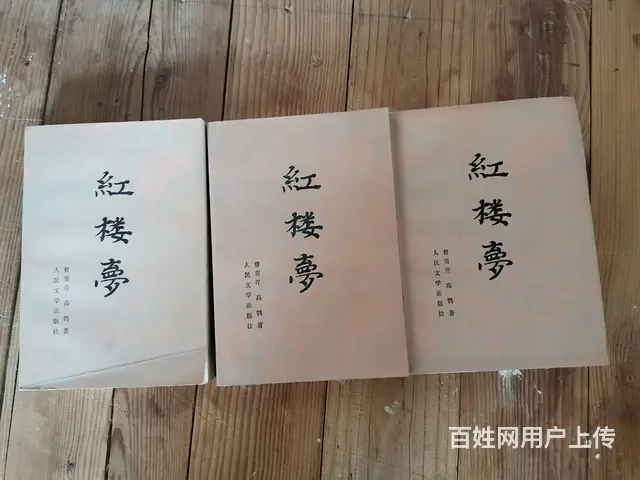 紅楼夢
曹雪芹 高鹗著
人民文学出版社
紅楼夢
曹雪芹 高鹗著
人民文学出版社
紅楼夢
曹雪芹 高鹗著
人民文学出版社
百姓网用户上传